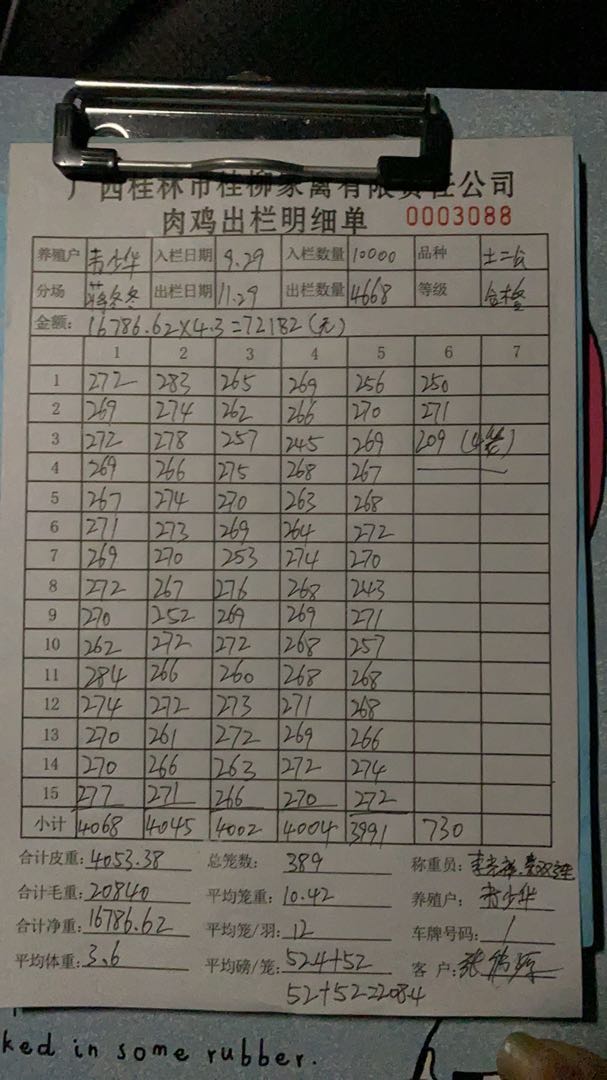 广西桂林市桂柳家禽有限责任公司
肉鸡出栏明细单 0003088
养殖户 肖少华 入栏日期 9.29 入栏数量 10000 品种 土二
分场 蒋冬冬 出栏日期 11.29 出栏数量 4668 等级
金额: 16786.62×4.3=72182(元)
1 2 3 4 5 6 7
1 272 283 265 269 256 250
2 269 274 262 266 270 271
3 272 278 257 245 269 209 (4笼)
4 269 266 275 268 267
5 267 274 270 263 268
6 271 273 269 264 272
7 269 270 253 274 270
8 272 267 276 268 243
9 270 252 269 269 271
10 262 272 272 268 257
11 284 266 260 268 268
12 274 272 273 271 268
13 270 261 272 269 266
14 270 266 263 272 274
15 277 271 266 270 272
小计 4068 4045 4002 4004 3991 730
合计皮重: 4053.38 总笼数: 389 称重员:
合计毛重: 20840 平均笼重: 10.42 养殖户: 肖少华
合计净重: 16786.62 平均笼/羽: 12 车牌号码: 1
平均体重: 3.6 平均磅/笼: 52.4+52 客户:
52+52=208.4
ked in some rubber.